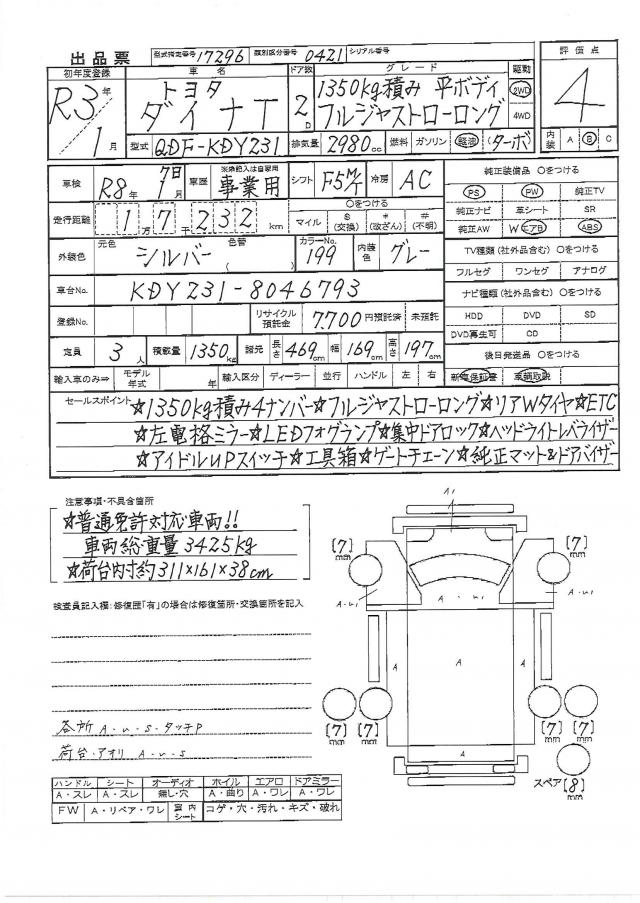 出品票 型式指定番号 17296 類別区分番号 0421 シリアル番号
初年度登録 車名 ドア数 グレード 駆動 評価点
R3年 トヨタ 1350kg積み 平ボディ 2WD
ダイナT 2D フルジャストローロング 4WD 4
1月 型式 QDF-KDY231 排気量 2980cc 燃料 ガソリン 軽油 (ターボ) 内装 A B C
車検 R8年 7日 1月 車歴 ※未記入は自家用 事業用 シフト F5M/T 冷房 AC 純正装備品 ○をつける
PS PW 純正TV
走行距離 1万7千232km ○をつける マイル $(交換) *(改ざん) #(不明) 純正ナビ 革シート SR
純正AW WエアB ABS
外装色 元色 シルバー 色替 ( ) カラーNo. 199 内装色 グレー TV種類(社外品含む) ○をつける
フルセグ ワンセグ アナログ
車台No. KDY231-8046793 ナビ種類(社外品含む) ○をつける
登録No. リサイクル預託金 7,700円預託済 未預託 HDD DVD SD
DVD再生可 CD
定員 3人 積載量 1350kg 諸元 長さ 469cm 幅 169cm 高さ 197cm 後日発送品 ○をつける
輸入車のみ⇒ モデル年式 年 輸入区分 ディーラー 並行 ハンドル 左 右 新車保証書 車輌取説
セールスポイント ☆1350kg積み4ナンバー☆フルジャストローロング☆リアWタイヤ☆ETC
☆左電格ミラー☆LEDフォグランプ☆集中ドアロック☆ヘッドライトレベライザー
☆アイドルUPスイッチ☆工具箱☆ゲートチェーン☆純正マット&ドアバイザー
注意事項・不具合箇所
☆普通免許対応車両!!
車両総重量 3425kg
☆荷台内寸約311×161×38cm
検査員記入欄:修復歴「有」の場合は修復箇所・交換箇所を記入
各所 A・U・S・タッチP
荷台・アオリ A・U・S
A1
[7]mm [7]mm
A・U1 A・U1
A A A
[7]mm [7]mm [7]mm [7]mm
A
スペア[8]mm
ハンドル シート オーディオ ホイル エアロ ドアミラー
A・スレ A・スレ 無し・穴 A・曲り A・ワレ A・ワレ
FW A・リペア・ワレ 室内シート コゲ・穴・汚れ・キズ・破れ